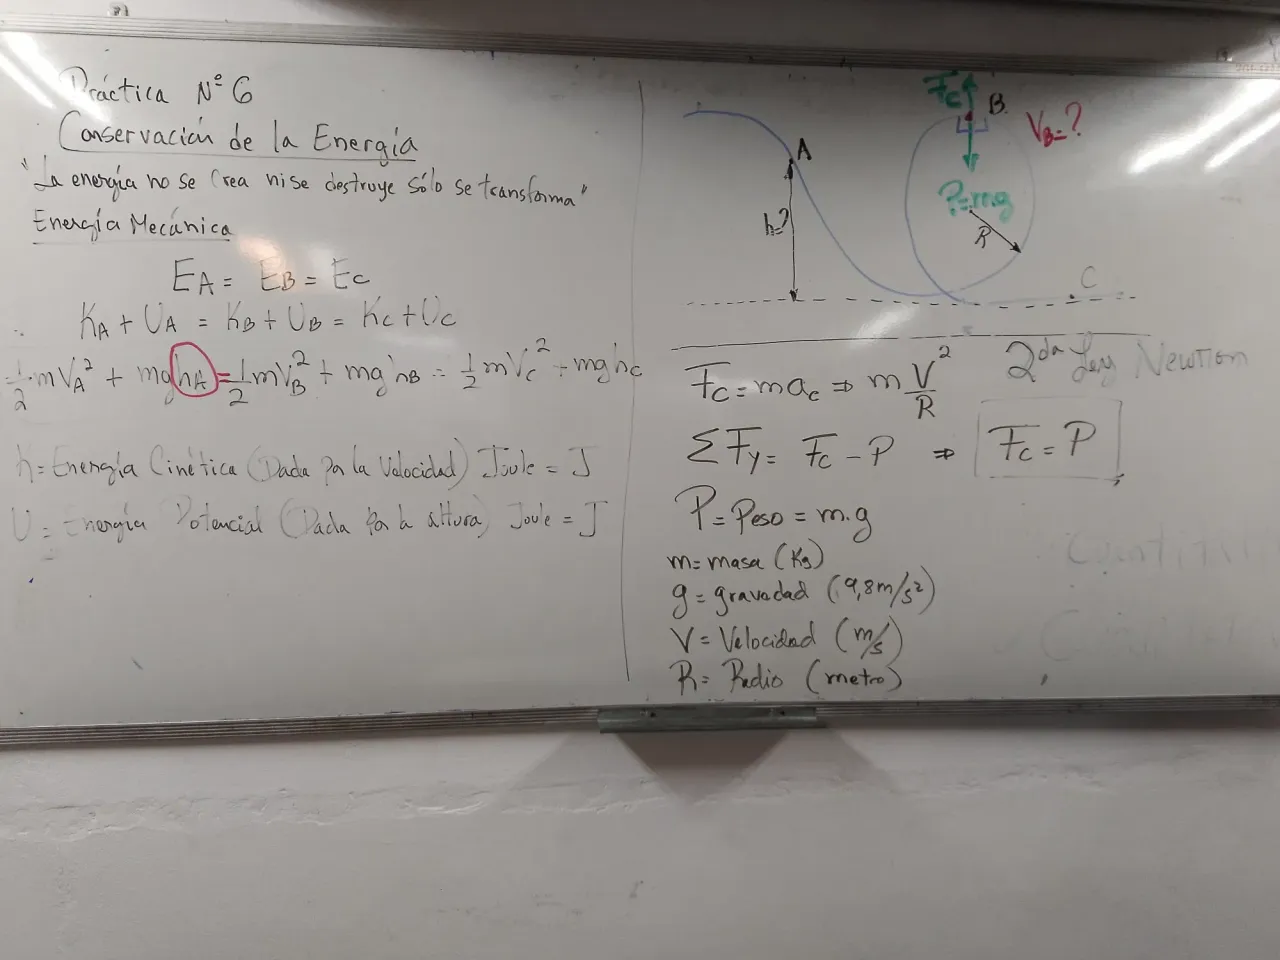 Práctica N° 6
Conservación de la Energía
"La energía no se crea ni se destruye sólo se transforma"
Energía Mecánica
EA = EB = Ec
∴ KA + UA = KB + UB = Kc + Uc
= 1/2 mVA² + mghA = 1/2 mVB² + mghB = 1/2 mVc² + mghc
K = Energía Cinética (Dada por la Velocidad) Joule = J
U = Energía Potencial (Dada por la altura) Joule = J
Fc
B
VB = ?
A
h=?
P = mg
R
C
Fc = mac ⇒ m V²/R
2da Ley Newton
ΣFy = Fc − P ⇒ Fc = P
P = Peso = m.g
m = masa (Kg)
g = gravedad (9,8 m/s²)
V = Velocidad (m/s)
R = Radio (metro)